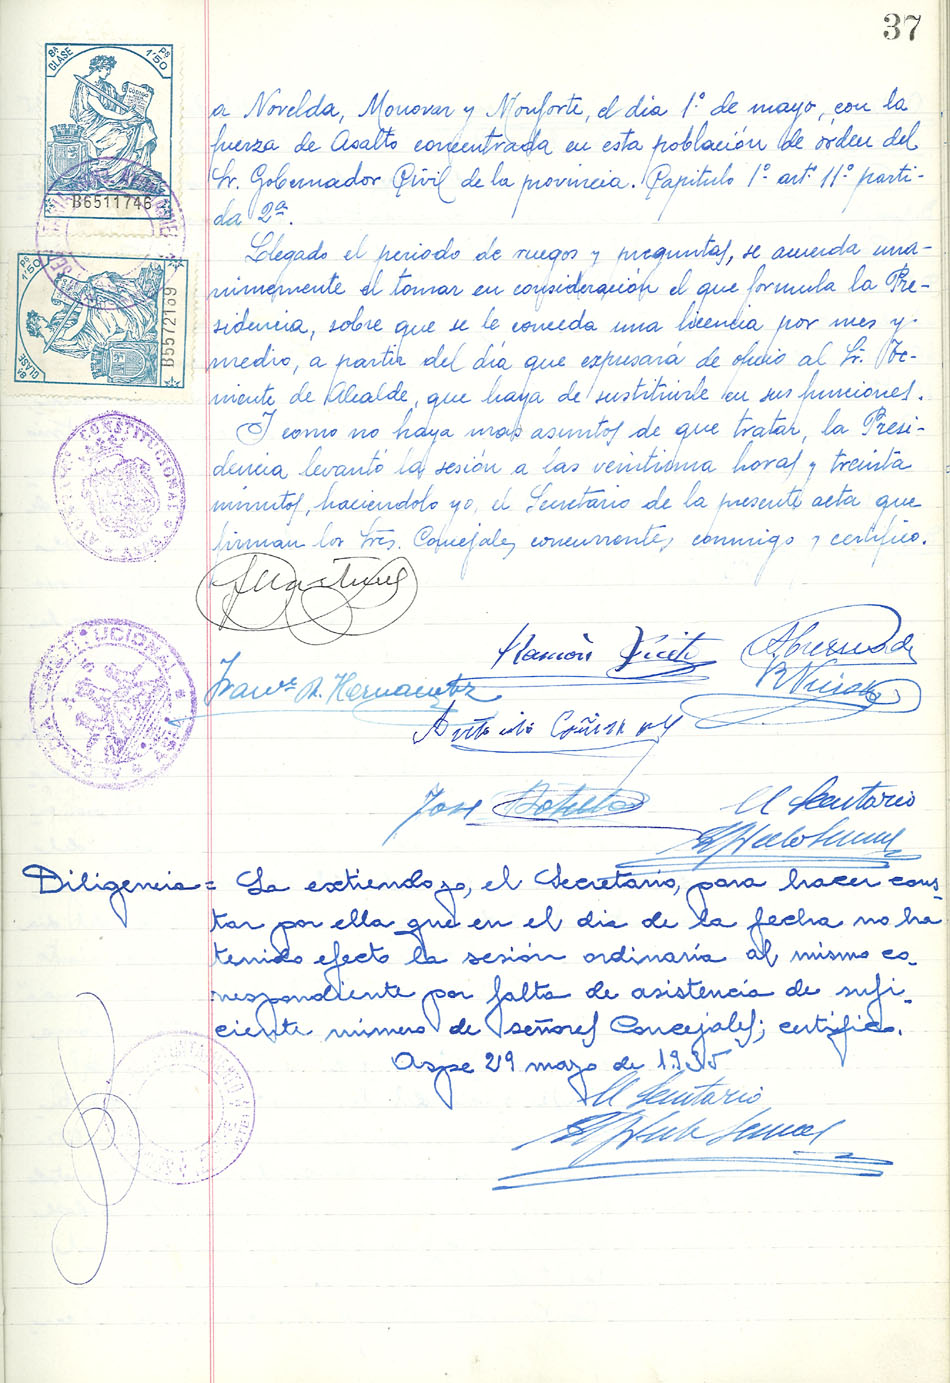 37
8ª CLASE
Ps 1'50
CODIGO
B6511746
Ps 1'50
8ª CLASE
B5572189
a Novelda, Monovar y Monforte, el dia 1º de mayo, con la
fuerza de Asalto concentrada en esta población de órden del
Sr. Gobernador Civil de la provincia. Capitulo 1º artº 11º parti-
da 2ª.
Llegado el periodo de ruegos y preguntas, se acuerda una-
nimemente el tomar en consideración el que formula la Pre-
sidencia, sobre que se le conceda una licencia por mes y
medio, a partir del día que expresará de oficio al Sr. Te-
niente de Alcalde, que haya de sustituirle en sus funciones.
Y como no haya mas asuntos de que tratar, la Presi-
dencia levantó la sesión a las veintiuna horas y treinta
minutos, haciendolo yo, el Secretario de la presente acta que
firman los Sres. Concejales concurrentes conmigo y certifico.
AYUNTAMIENTO CONSTITUCIONAL ASPE
Martinez
Ramón
ALCALDIA CONSTITUCIONAL ASPE
Antonio
Jose Botella
El Secretario
Diligencia = La extiendo yo, el Secretario, para hacer cons-
tar por ella que en el dia de la fecha no ha
tenido efecto la sesión ordinaria al mismo co-
rrespondiente por falta de asistencia de sufi-
ciente número de señores Concejales; certifico.
Aspe 29 mayo de 1935
El Secretario